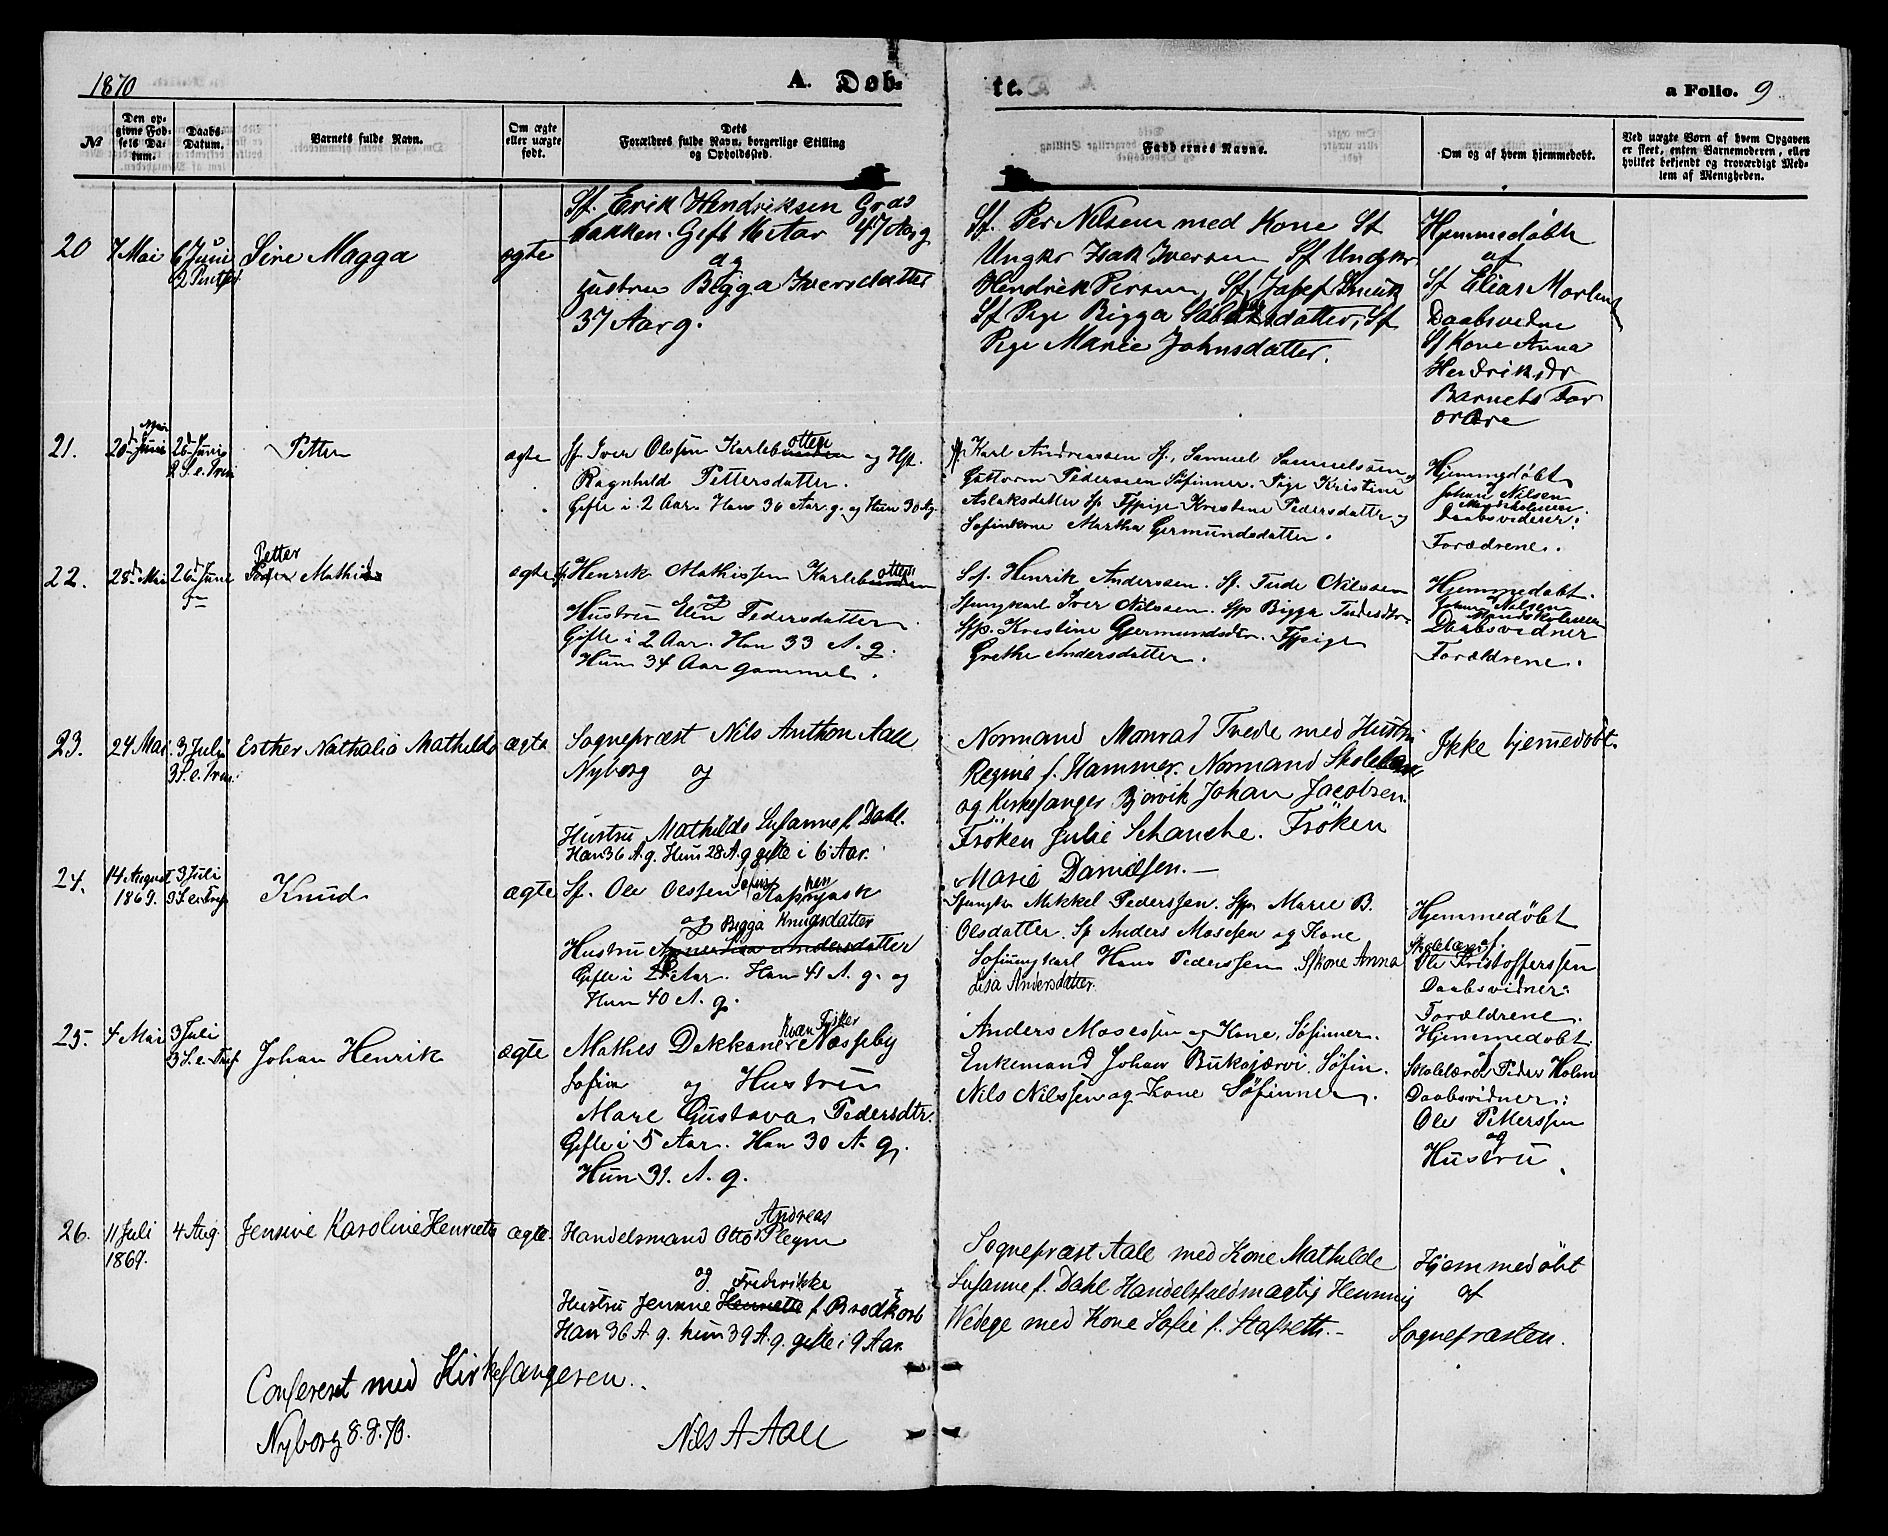 1870
A. Døb-
te.
a Folio. 9
№
Den op-
givne Fød-
sels Da-
tum.
Daabs-
Datum.
Barnets fulde Navn.
Om ægte
eller uægte
født.
Dets
Forældres fulde Navn, borgerlige Stilling
og Opholdssted.
Faddernes Navne.
Om og af hvem hjemmedøbt.
Ved uægte Børn af hvem Opgaven
er skeet, enten Barnemoderen, eller
hvilket bekjendt og troværdigt Med-
lem af Menigheden.
20
7 Mai
6 Juni
Sire Magga
ægte
Sf. Erik Hendriksen Græs
bakken. Gift 16 Aar 47 Aar g
og
Hustru Bigga Iversdatter
37 Aar g.
Sf. Per Nilsen med Kone Sf
Ungkr Isak Iversen Sf Ungkr
Hendrik Persen, Sf. Josef
Sf Pige Bigga datter, Sf
Pige Marie Johnsdatter.
Hjemmedøbt
af
Sf Elias
Daabsvidne
Sf Kone Anna
Hendriksdr
Barnets For
ældre
21.
20d Juni
Mai
26d Juni
2 S. e. Trin
Petter
ægte
Sf. Iver Olssen Karlebotten og Hst.
Ragnhild Pettersdatter.
Gifte i 2 Aar. Han 30 Aar. g. og Hun 30 Ag.
Karl Andreassen Sf., Samuel Samuelssen
Guttorm Pederssen Søfinner. Pige Kristine
Aslaksdatter Sf. Fjpige Kristine Pedersdatter og
Søfinkone Martha Germundsdatter.
Hjemmedøbt
Johan Nilsen
Daabsvidner:
Forældrene.
22.
28d Mai
26d Juni
Petter Mathis
ægte
Henrik Mathissen Karlebotten
og
Hustru Elen Pedersdatter.
Gifte i 2 Aar. Han 33 A. g.
Hun 34 Aar gammel.
Sof. Henrik Anderssen. Sf. Tude Nilssen
Sfungkarl Iver Nilssen. Sfp Bigga Tudesdtr
Sfp. Kristine Gjermundsdtr. Fjpige
Grethe Andersdatter.
Hjemmedøbt.
Johan Nilsen
Daabsvidner
Forældrene.
23.
24 Mai
3 Juli
3 S. e. Trin.
Esther Nathalia Mathilde
ægte
Sognepræst Nils Anthon Aall
Nyborg og
Hustru Mathilde Susanne f. Dahl.
Han 36 A. g. Hun 28 A. g gifte i 6 Aar.
Normand Monrad Tvede med Hustru
Regine f. Hammer. Normand Skolelærer
og Kirkesanger Bjørvik Johan Jacobsen.
Frøken Julie Schanche. Frøken
Marie Danielsen.
Ikke hjemmedøbt.
24.
14 August
1869.
3 Juli
3 S e. Trin
Knud
ægte
Sf. Ole Olssen
og Bigga Knudsdatter
Hustru Anne Lisa Andersdatter
Gifte i 2 Aar. Han 41 A. g. og
Hun 40 A. g.
Sfungkr Mikkel Pederssen. Sfp Marie B.
Olsdatter. Sf Anders Mosesen og Kone
Søfinungkarl Hans Pederssen Sfkone Anna
Lisa Andersdatter.
Hjemmedøbt
Skolelærer
Ole Kristofferssen
Daabsvidner:
Forældrene.
25.
4 Mai
3 Juli
3 S. e. Trin
Johan Henrik
ægte
Kvæn Fisker
Mathis Dakkaner Næsseby
Sofin og Hustru
Mare Gustava Pedersdtr.
Gifte i 5 Aar. Han 30 A. g.
Hun 31. A. g.
Anders Mosessen og Kone, Søfinner.
Enkemand Johan Bukajærvi. Søfin.
Nils Nilssen og Kone Søfinner.
Hjemmedøbt.
af
Skolelærer Peder Holm
Daabsvidner:
Ole Petterssen
og
Hustru.
26.
11 Juli
1869.
4 Aug.
Jensine Karoline Henriette
ægte.
Andreas
Handelsmand Otto Pleym
og Frederikke
Hustru Jensine Henriette f Brodtkorb
Han 36 A g. hun 39 A. g. gifte i 9 Aar.
Sognepræst Aall med Kone Mathilde
Susanne f. Dahl Handelsfuldmægtig Henning
Wedege med Kone Sofie f. Stafseth.
Hjemmedøbt
af
Sognepræsten.
Confereret med Kirkesangeren.
Nyborg 8. 8. 70.
Nils A Aall